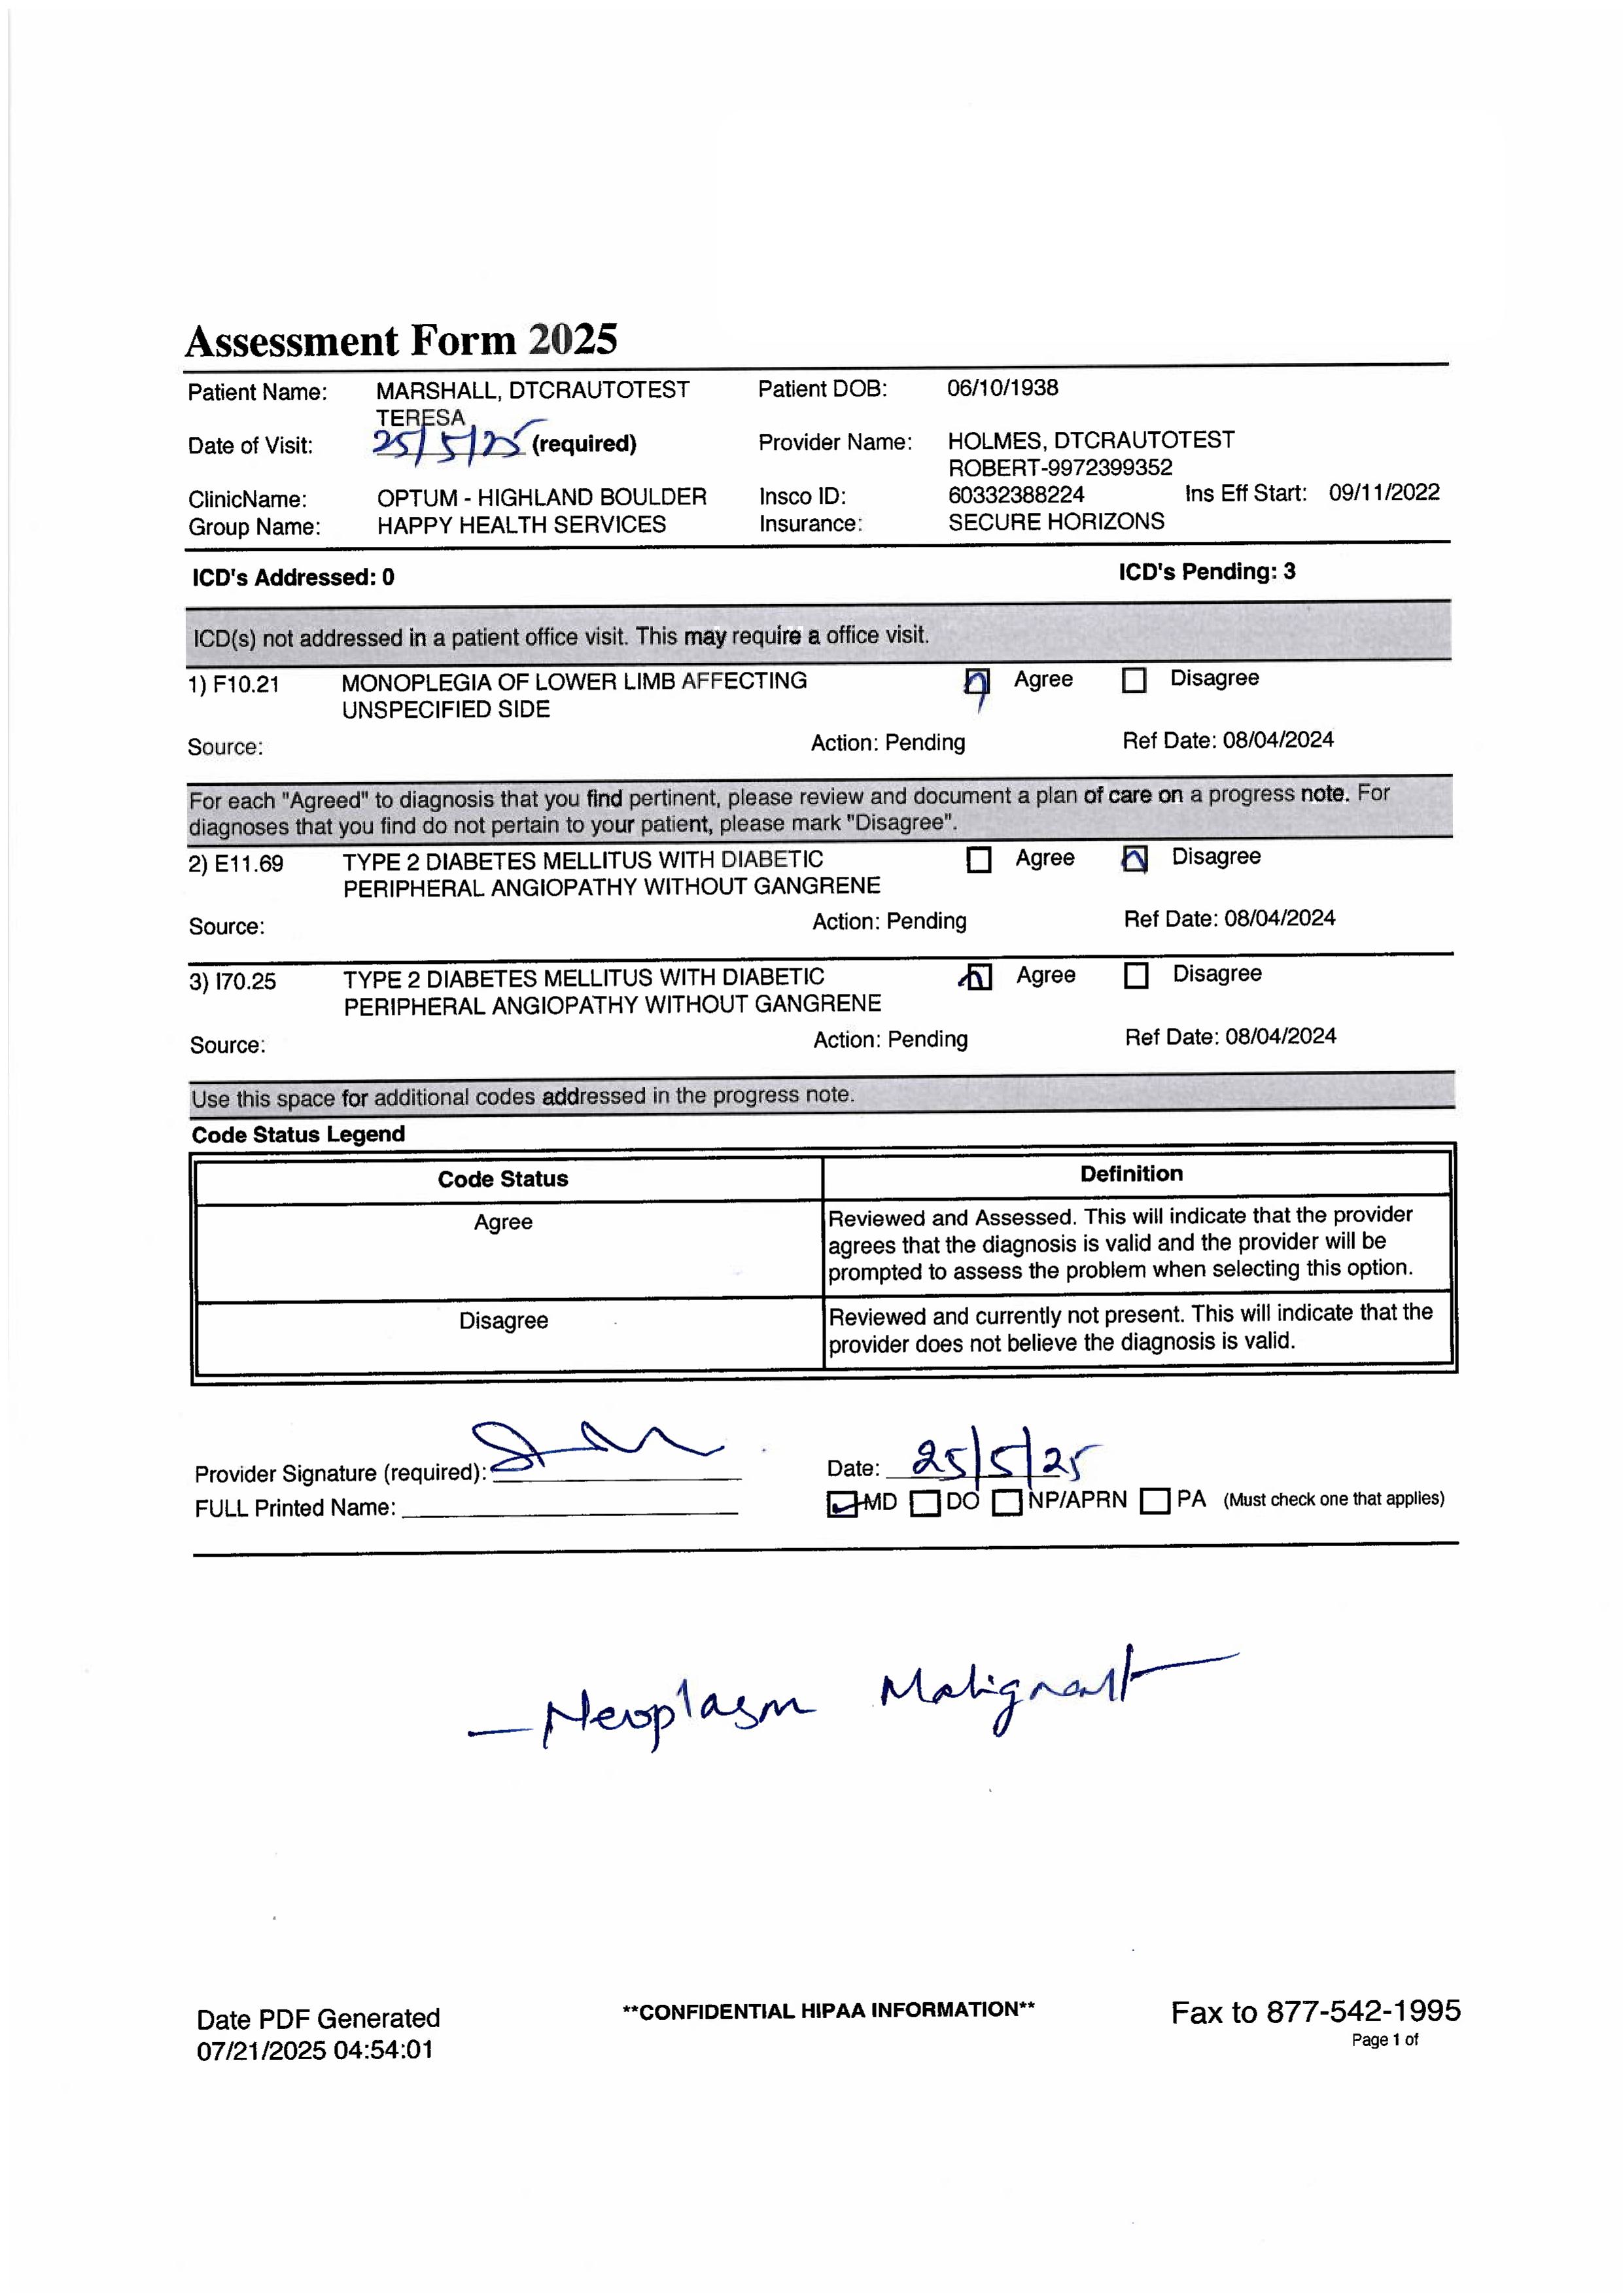 Assessment Form 2025
Patient Name: MARSHALL, DTCRAUTOTEST TERESA Patient DOB: 06/10/1938
Date of Visit: 25/5/25 (required) Provider Name: HOLMES, DTCRAUTOTEST ROBERT-9972399352
ClinicName: OPTUM - HIGHLAND BOULDER Insco ID: 60332388224 Ins Eff Start: 09/11/2022
Group Name: HAPPY HEALTH SERVICES Insurance: SECURE HORIZONS
ICD's Addressed: 0 ICD's Pending: 3
ICD(s) not addressed in a patient office visit. This may require a office visit.
1) F10.21 MONOPLEGIA OF LOWER LIMB AFFECTING Agree Disagree
UNSPECIFIED SIDE
Source: Action: Pending Ref Date: 08/04/2024
For each "Agreed" to diagnosis that you find pertinent, please review and document a plan of care on a progress note. For
diagnoses that you find do not pertain to your patient, please mark "Disagree".
2) E11.69 TYPE 2 DIABETES MELLITUS WITH DIABETIC Agree Disagree
PERIPHERAL ANGIOPATHY WITHOUT GANGRENE
Source: Action: Pending Ref Date: 08/04/2024
3) I70.25 TYPE 2 DIABETES MELLITUS WITH DIABETIC Agree Disagree
PERIPHERAL ANGIOPATHY WITHOUT GANGRENE
Source: Action: Pending Ref Date: 08/04/2024
Use this space for additional codes addressed in the progress note.
Code Status Legend
Code Status Definition
Agree Reviewed and Assessed. This will indicate that the provider
agrees that the diagnosis is valid and the provider will be
prompted to assess the problem when selecting this option.
Disagree Reviewed and currently not present. This will indicate that the
provider does not believe the diagnosis is valid.
Provider Signature (required): Date: 25/5/25
FULL Printed Name: MD DO NP/APRN PA (Must check one that applies)
— Neoplasm Malignant
Date PDF Generated **CONFIDENTIAL HIPAA INFORMATION** Fax to 877-542-1995
07/21/2025 04:54:01 Page 1 of